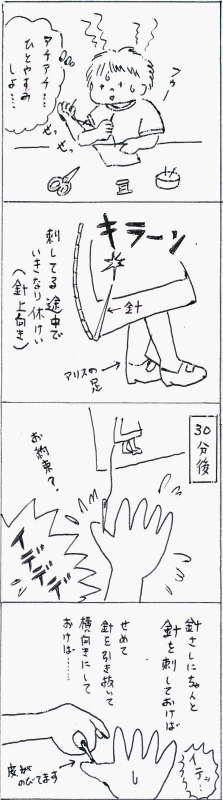 フゥー
アチアチ…
ひとやすみ
しよ……
キラーン
針
刺してる途中で
いきなり休けい
(針上向き)
アリスの
足
30分後
お約束？
イデデデ
針さしにちゃんと
針を刺しておけば
せめて
針を引き抜いて
横向きにして
おけば……
イテッ!
皮が
のびてます